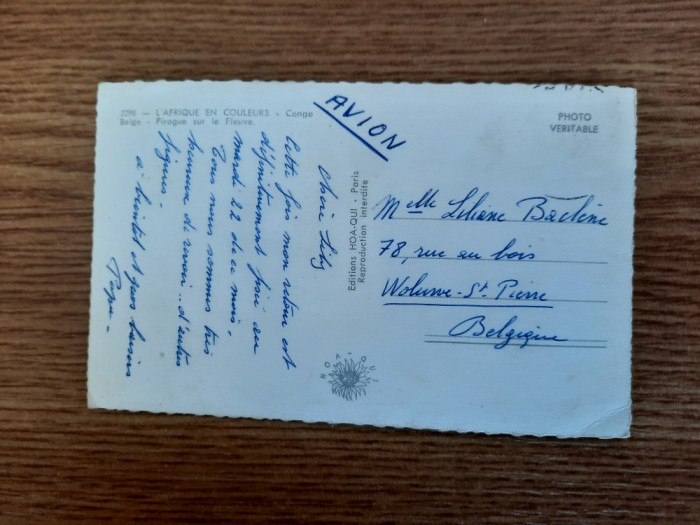 7298 — L'AFRIQUE EN COULEURS - Congo
Belge - Pirogue sur le Fleuve.
AVION
PHOTO
VERITABLE
Chère Lily
Cette fois mon retour est
définitivement fixé au
mardi 22 de ce mois.
nous sommes très
heureux de revoir.. d'autres
figures -
à bientôt et gros baisers
Editions HOA-QUI - Paris
Reproduction interdite
HOA QUI
Melle Liliane
78, rue au bois
Woluwe-St Pierre
Belgique